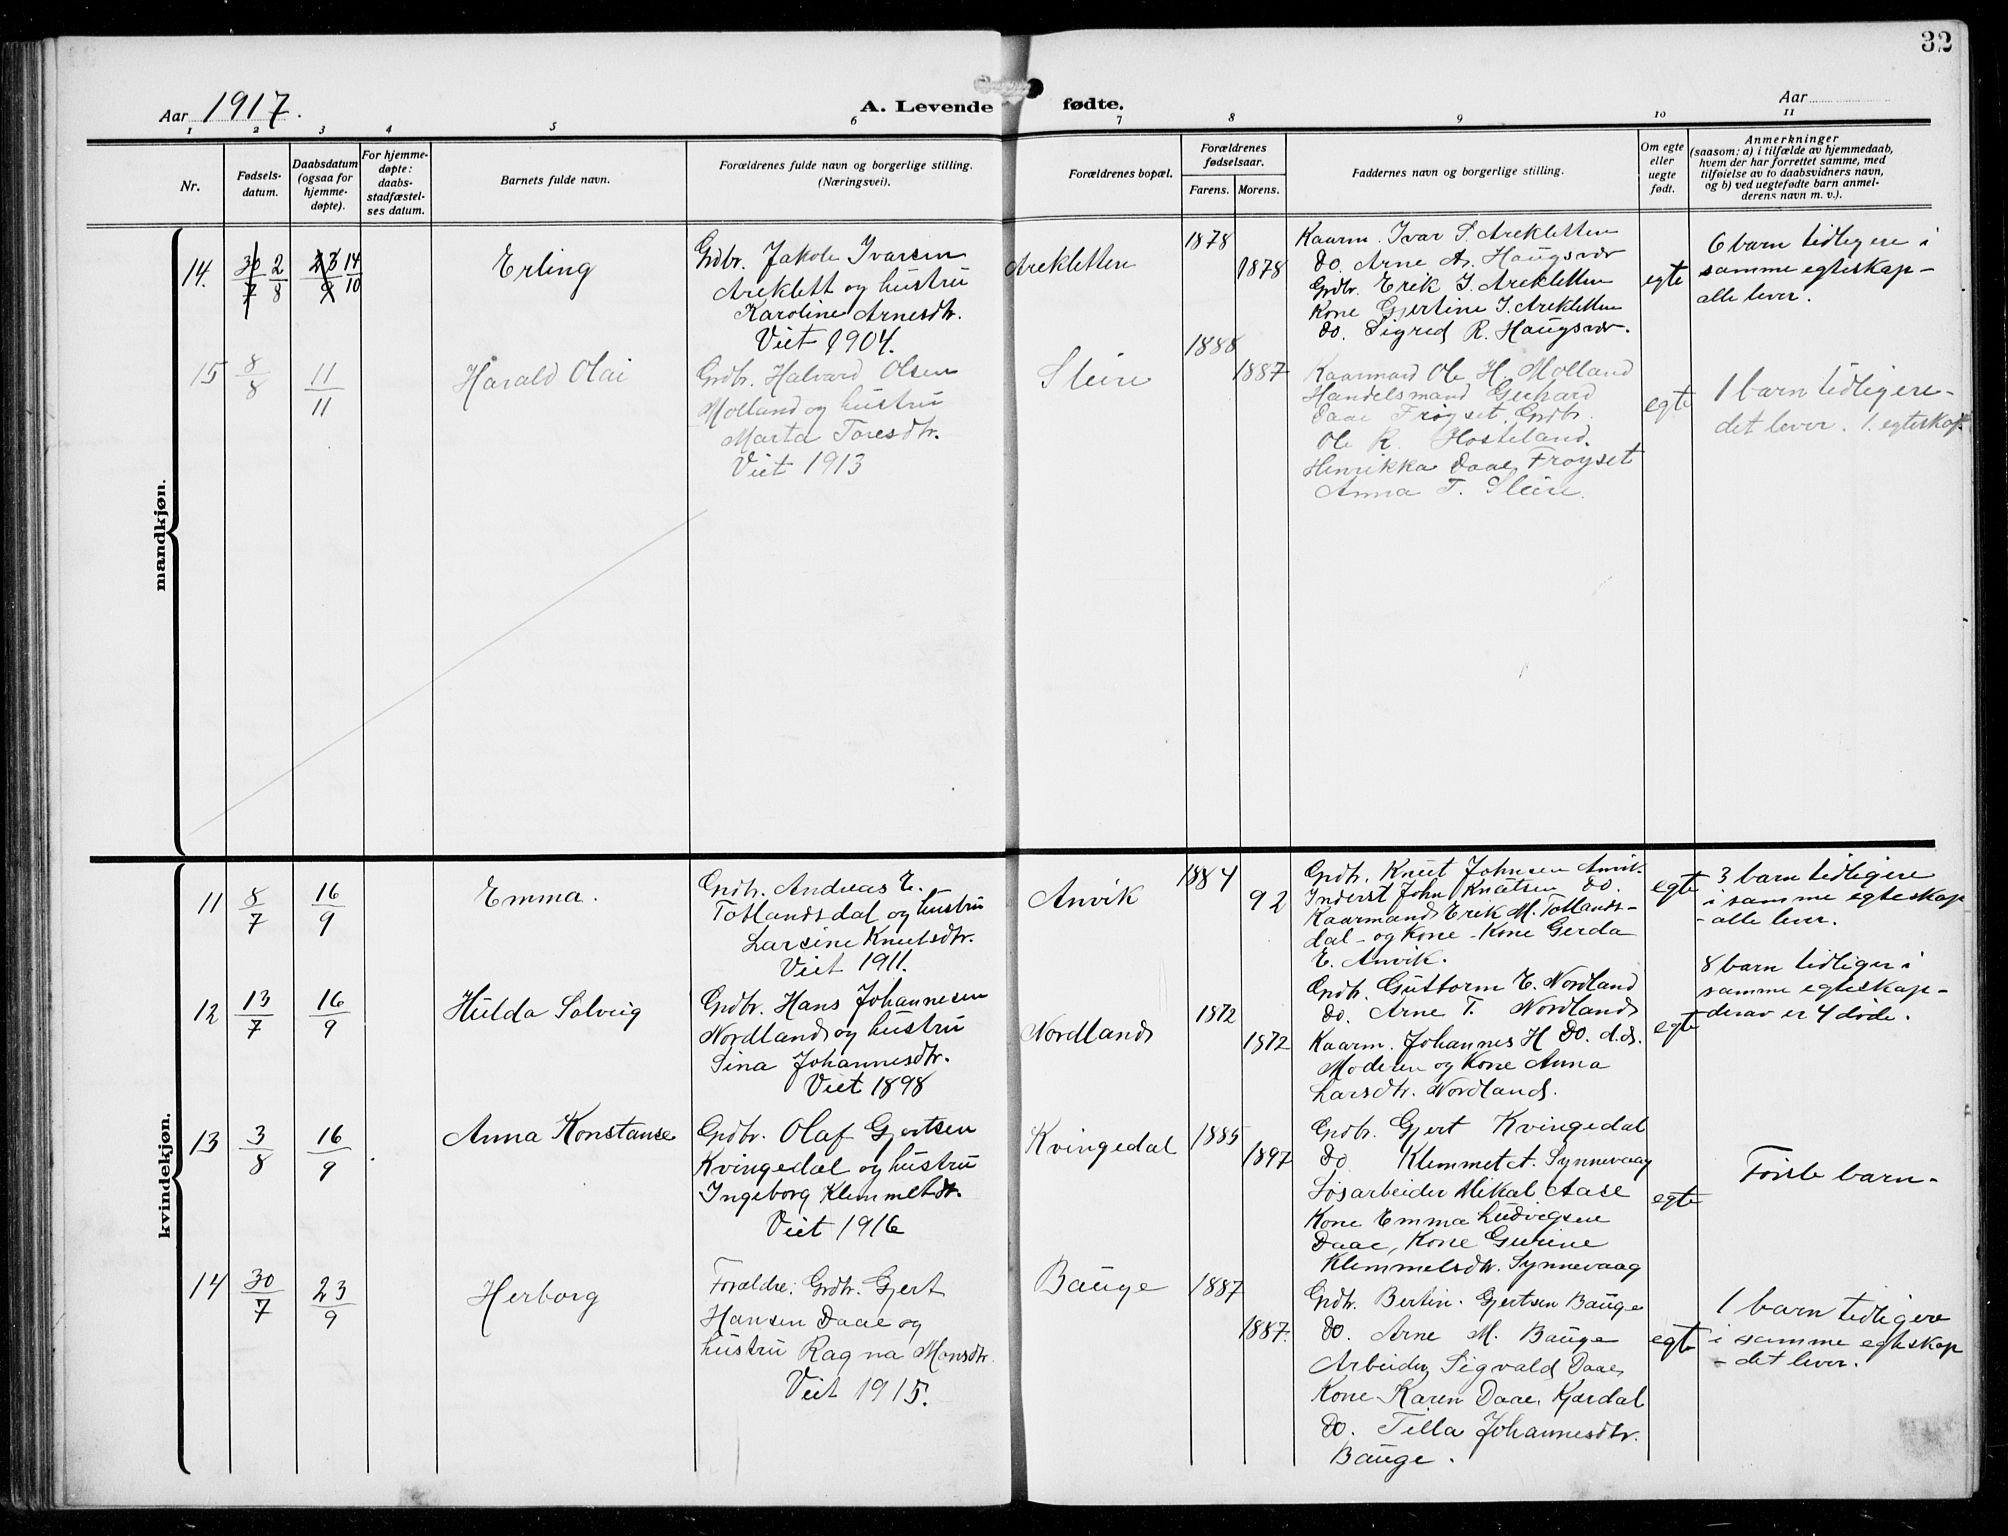 32
Aar 1917.
A. Levende fødte.
Aar
1 2 3 4 5 6 7 8 9 10 11
Nr.
Fødsels-
datum.
Daabsdatum
(ogsaa for
hjemme-
døpte).
For hjemme-
døpte:
daabs-
stadfæstel-
ses datum.
Barnets fulde navn.
Forældrenes fulde navn og borgerlige stilling.
(Næringsvei).
Forældrenes bopæl.
Forældrenes
fødselsaar.
Farens. Morens.
Faddernes navn og borgerlige stilling.
Om egte
eller
uegte
født.
Anmerkninger
(saasom: a) i tilfælde av hjemmedaab,
hvem der har forrettet samme, med
tilføielse av to daabsvidners navn,
og b) ved uegtefødte barn anmel-
derens navn m. v.).
mandkjøn.
14.
30/7 2/8
23/9 14/10
Erling
Grdbr. Jakob Ivarsen
Areklett og hustru
Karoline Arnesdtr.
Viet 1904.
Arekletten
1878
1878
Kaarm. Ivar S. Arekletten
Do. Arne A. Haugsvær
Grdbr. Erik J. Arekletten
Kone Gjertine J. Arekletten
Do. Sigred R. Haugsvær.
egte
6 barn tidligere i
samme egteskap -
alle lever.
15
8/8
11/11
Harald Olai
Grdbr. Halvard Olsen
Molland og hustru
Marta Toresdtr.
Viet 1913
Steire
1888
1887
Kaarmand Ole H. Molland
Handelsmand Gerhard
Daae Frøyset, Grdbr.
Ole R. Hosteland.
Henrikka Daae, Frøyset
Anna T. Steire.
egte
1 barn tidligere -
det lever. 1. egteskap.
kvindekjøn.
11
8/7
16/9
Emma.
Grdbr. Andreas E.
Totlandsdal og hustru
Larsine Knutsdtr.
Viet 1911.
Anvik
1884
92
Grdbr. Knut Johnsen Anvik
Inderst John Knutsen Do.
Kaarmand Erik M. Totlands-
dal - og Kone - Kone Gerda
E. Anvik.
egte
3 barn tidligere
i samme egteskap
- alle lever.
12
13/7
16/9
Hulda Solveig
Grdbr. Hans Johannesen
Nordland og hustru
Sina Johannesdtr.
Viet 1898
Nordlands
1872
1872
Grdbr. Guttorm E. Nordland
Do. Arne T. Nordlands
Kaarm. Johannes H Do. d.ds.
Moderen og Kone Anna
Larsdtr. Nordlands.
egte
8 barn tidliger i
samme egteskap -
derav er 4 døde.
13
3/8
16/9
Anna Konstanse
Grdbr. Olaf Gjertsen
Kvingedal og hustru
Ingeborg Klemmetsdtr.
Viet 1916
Kvingedal
1885
1897
Grdbr. Gjert Kvingedal
Do Klemmet A. Synnevaag
Løsarbeider Mikal Aase
Kone Emma Ludvigsen
Daae, Kone Gurine
Klemmetsdtr. Synnevaag
egte
Første barn -
14
30/7
23/9
Herborg
Forældre: Grdbr. Gjert
Hansen Daae og
hustru Ragna Monsdtr.
Viet 1915.
Bauge
1887
1887.
Grdbr. Bertin Gjertsen Bauge
Do. Arne M. Bauge
Arbeider, Sigvald Daae,
Kone Karen Daae, Kjærdal
Do. Tilla Johannesdtr.
Bauge.
egte
1 barn tidligere
i samme egteskap
- det lever.